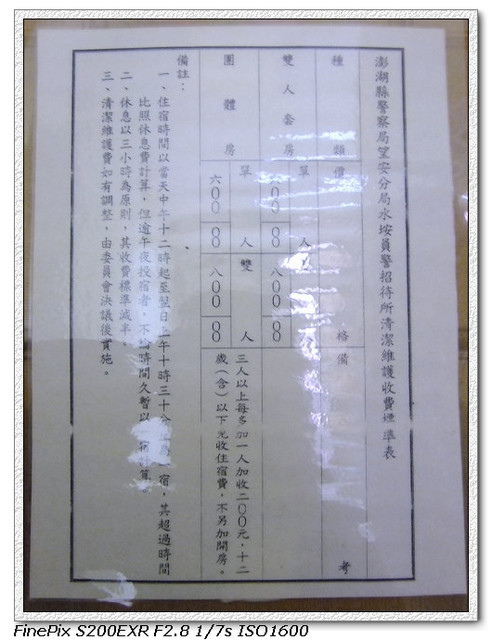 澎湖縣警察局望安分局水垵員警招待所清潔維護收費標準表
種類
價格
備考
雙人套房
單人
雙人
八00
團體房
單人
六00
雙人
八00
三人以上每多加一人加收二00元,十二
歲(含)以下免收住宿費,不另加開房。
備註:
一、住宿時間以當天中午十二時起至翌日上午十時三十分 宿,其超過時間
比照休息費計算,但逾午夜投宿者,不論時間久暫以一宿計算。
二、休息以三小時為原則,其收費標準減半。
三、清潔維護費如有調整,由委員會決議後實施。
FinePix S200EXR F2.8 1/7s ISO1600